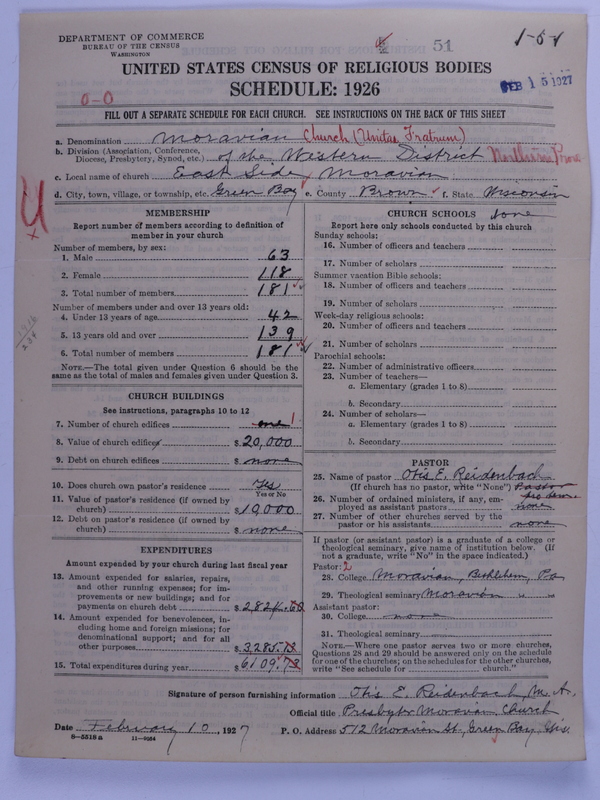 DEPARTMENT OF COMMERCE
BUREAU OF THE CENSUS
WASHINGTON
51
1-5-1
FEB 15 1927
UNITED STATES CENSUS OF RELIGIOUS BODIES
SCHEDULE: 1926
0-0
FILL OUT A SEPARATE SCHEDULE FOR EACH CHURCH. SEE INSTRUCTIONS ON THE BACK OF THIS SHEET
a. Denomination Moravian Church (Unitas Fratrum)
b. Division (Association, Conference, Diocese, Presbytery, Synod, etc.) of the Western District Northern Prov
c. Local name of church East Side, Moravian
d. City, town, village, or township, etc. Green Bay e. County Brown f. State Wisconsin
MEMBERSHIP
Report number of members according to definition of
member in your church
Number of members, by sex:
1. Male 63
2. Female 118
3. Total number of members 181
Number of members under and over 13 years old:
4. Under 13 years of age 42
5. 13 years old and over 139
6. Total number of members 181
NOTE.—The total given under Question 6 should be the
same as the total of males and females given under Question 3.
CHURCH BUILDINGS
See instructions, paragraphs 10 to 12
7. Number of church edifices one 1
8. Value of church edifices $20,000
9. Debt on church edifices $ none
10. Does church own pastor's residence Yes
Yes or No
11. Value of pastor's residence (if owned by
church) $10,000
12. Debt on pastor's residence (if owned by
church) $ none
EXPENDITURES
Amount expended by your church during last fiscal year
13. Amount expended for salaries, repairs,
and other running expenses; for im-
provements or new buildings; and for
payments on church debt $ 2,824.60
14. Amount expended for benevolences, in-
cluding home and foreign missions; for
denominational support; and for all
other purposes $3,285.13
15. Total expenditures during year $6109.73
CHURCH SCHOOLS
Report here only schools conducted by this church
Sunday schools:
16. Number of officers and teachers
17. Number of scholars
Summer vacation Bible schools:
18. Number of officers and teachers
19. Number of scholars
Week-day religious schools:
20. Number of officers and teachers
21. Number of scholars
Parochial schools:
22. Number of administrative officers
23. Number of teachers—
a. Elementary (grades 1 to 8)
b. Secondary
24. Number of scholars—
a. Elementary (grades 1 to 8)
b. Secondary
PASTOR
25. Name of pastor Otis E. Reidenbach
(If church has no pastor, write "None") Pastor
26. Number of ordained ministers, if any, em-
ployed as assistant pastors none
27. Number of other churches served by the
pastor or his assistants none
If pastor (or assistant pastor) is a graduate of a college or
theological seminary, give name of institution below. (If
not a graduate, write "No" in the space indicated.)
Pastor: 2
28. College Moravian, Bethlehem, Pa
29. Theological seminary Moravian " "
Assistant pastor:
30. College none
31. Theological seminary
NOTE.—Where one pastor serves two or more churches,
Questions 28 and 29 should be answered only on the schedule
for one of the churches; on the schedules for the other churches,
write "See schedule for church."
Signature of person furnishing information Otis E. Reidenbach, M.A.
Official title Presbyter Moravian Church
Date February 10, 1927 P. O. Address 512 Moravian St, Green Bay, Wis.
8-5518 a 11-9054